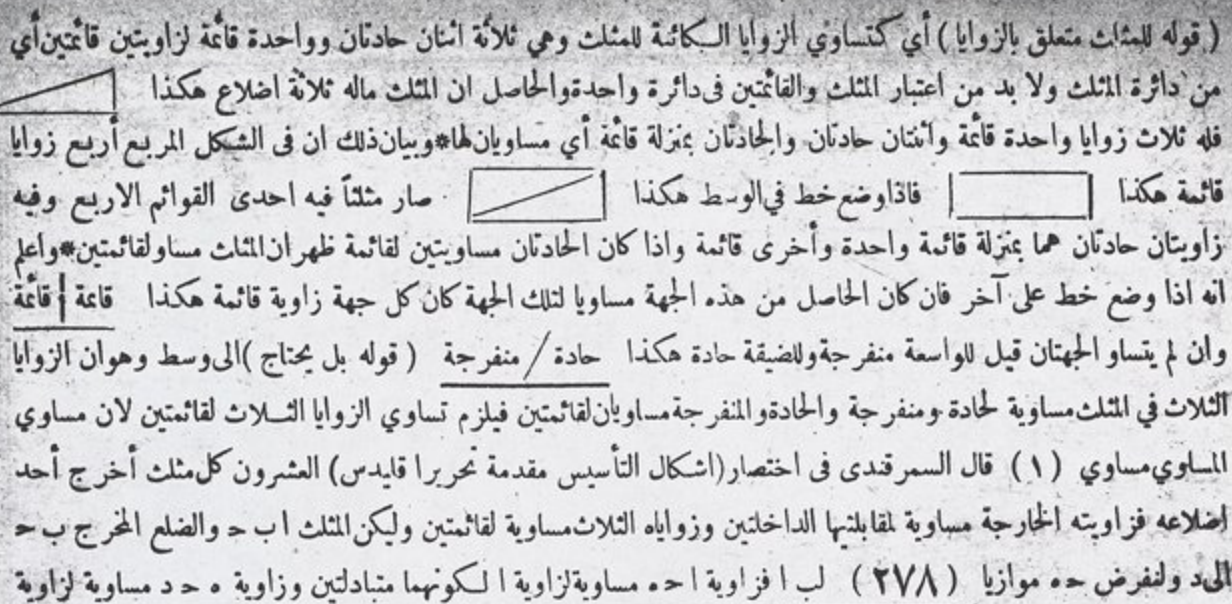 ( قوله للمثلث متعلق بالزوايا ) أي كتساوي الزوايا الكائنة للمثلث وهي ثلاثة اثنان حادتان وواحدة قائمة لزاويتين قائمتين أي
من دائرة المثلث ولا بد من اعتبار المثلث والقائمتين فى دائرة واحدة والحاصل ان المثلث ماله ثلاثة اضلاع هكذا
فله ثلاث زوايا واحدة قائمة واثنتان حادتان والحادتان بمنزلة قائمة أي مساويان لها*وبيان ذلك ان فى الشكل المربع أربع زوايا
قائمة هكذا فاذا وضع خط في الوسط هكذا صار مثلثاً فيه احدى القوائم الاربع وفيه
زاويتان حادتان هما بمنزلة قائمة واحدة وأخرى قائمة واذا كان الحادتان مساويتين لقائمة ظهر ان المثلث مساو لقائمتين*واعلم
أنه اذا وضع خط على آخر فان كان الحاصل من هذه الجهة مساويا لتلك الجهة كان كل جهة زاوية قائمة هكذا قائمة قائمة
وان لم يتساو الجهتان قيل للواسعة منفرجة وللضيقة حادة هكذا حادة / منفرجة ( قوله بل يحتاج ) الى وسط وهو ان الزوايا
الثلاث في المثلث مساوية لحادة ومنفرجة والحادة والمنفرجة مساويان لقائمتين فيلزم تساوي الزوايا الثلاث لقائمتين لان مساوي
المساوي مساوي (١) قال السمرقندى فى اختصار (اشكال التأسيس مقدمة تحرير اقليدس) العشرون كل مثلث أخرج أحد
اضلاعه فزاويته الخارجة مساوية لمقابلتيها الداخلتين وزواياه الثلاث مساوية لقائمتين وليكن المثلث ا ب ح والضلع المخرج ب ح
الى د ولنفرض ح ه موازيا (٢٧٨) ل ب ا فزاوية ا ح ه مساوية لزاوية ا لكونهما متبادلتين وزاوية ه ح د مساوية لزاوية